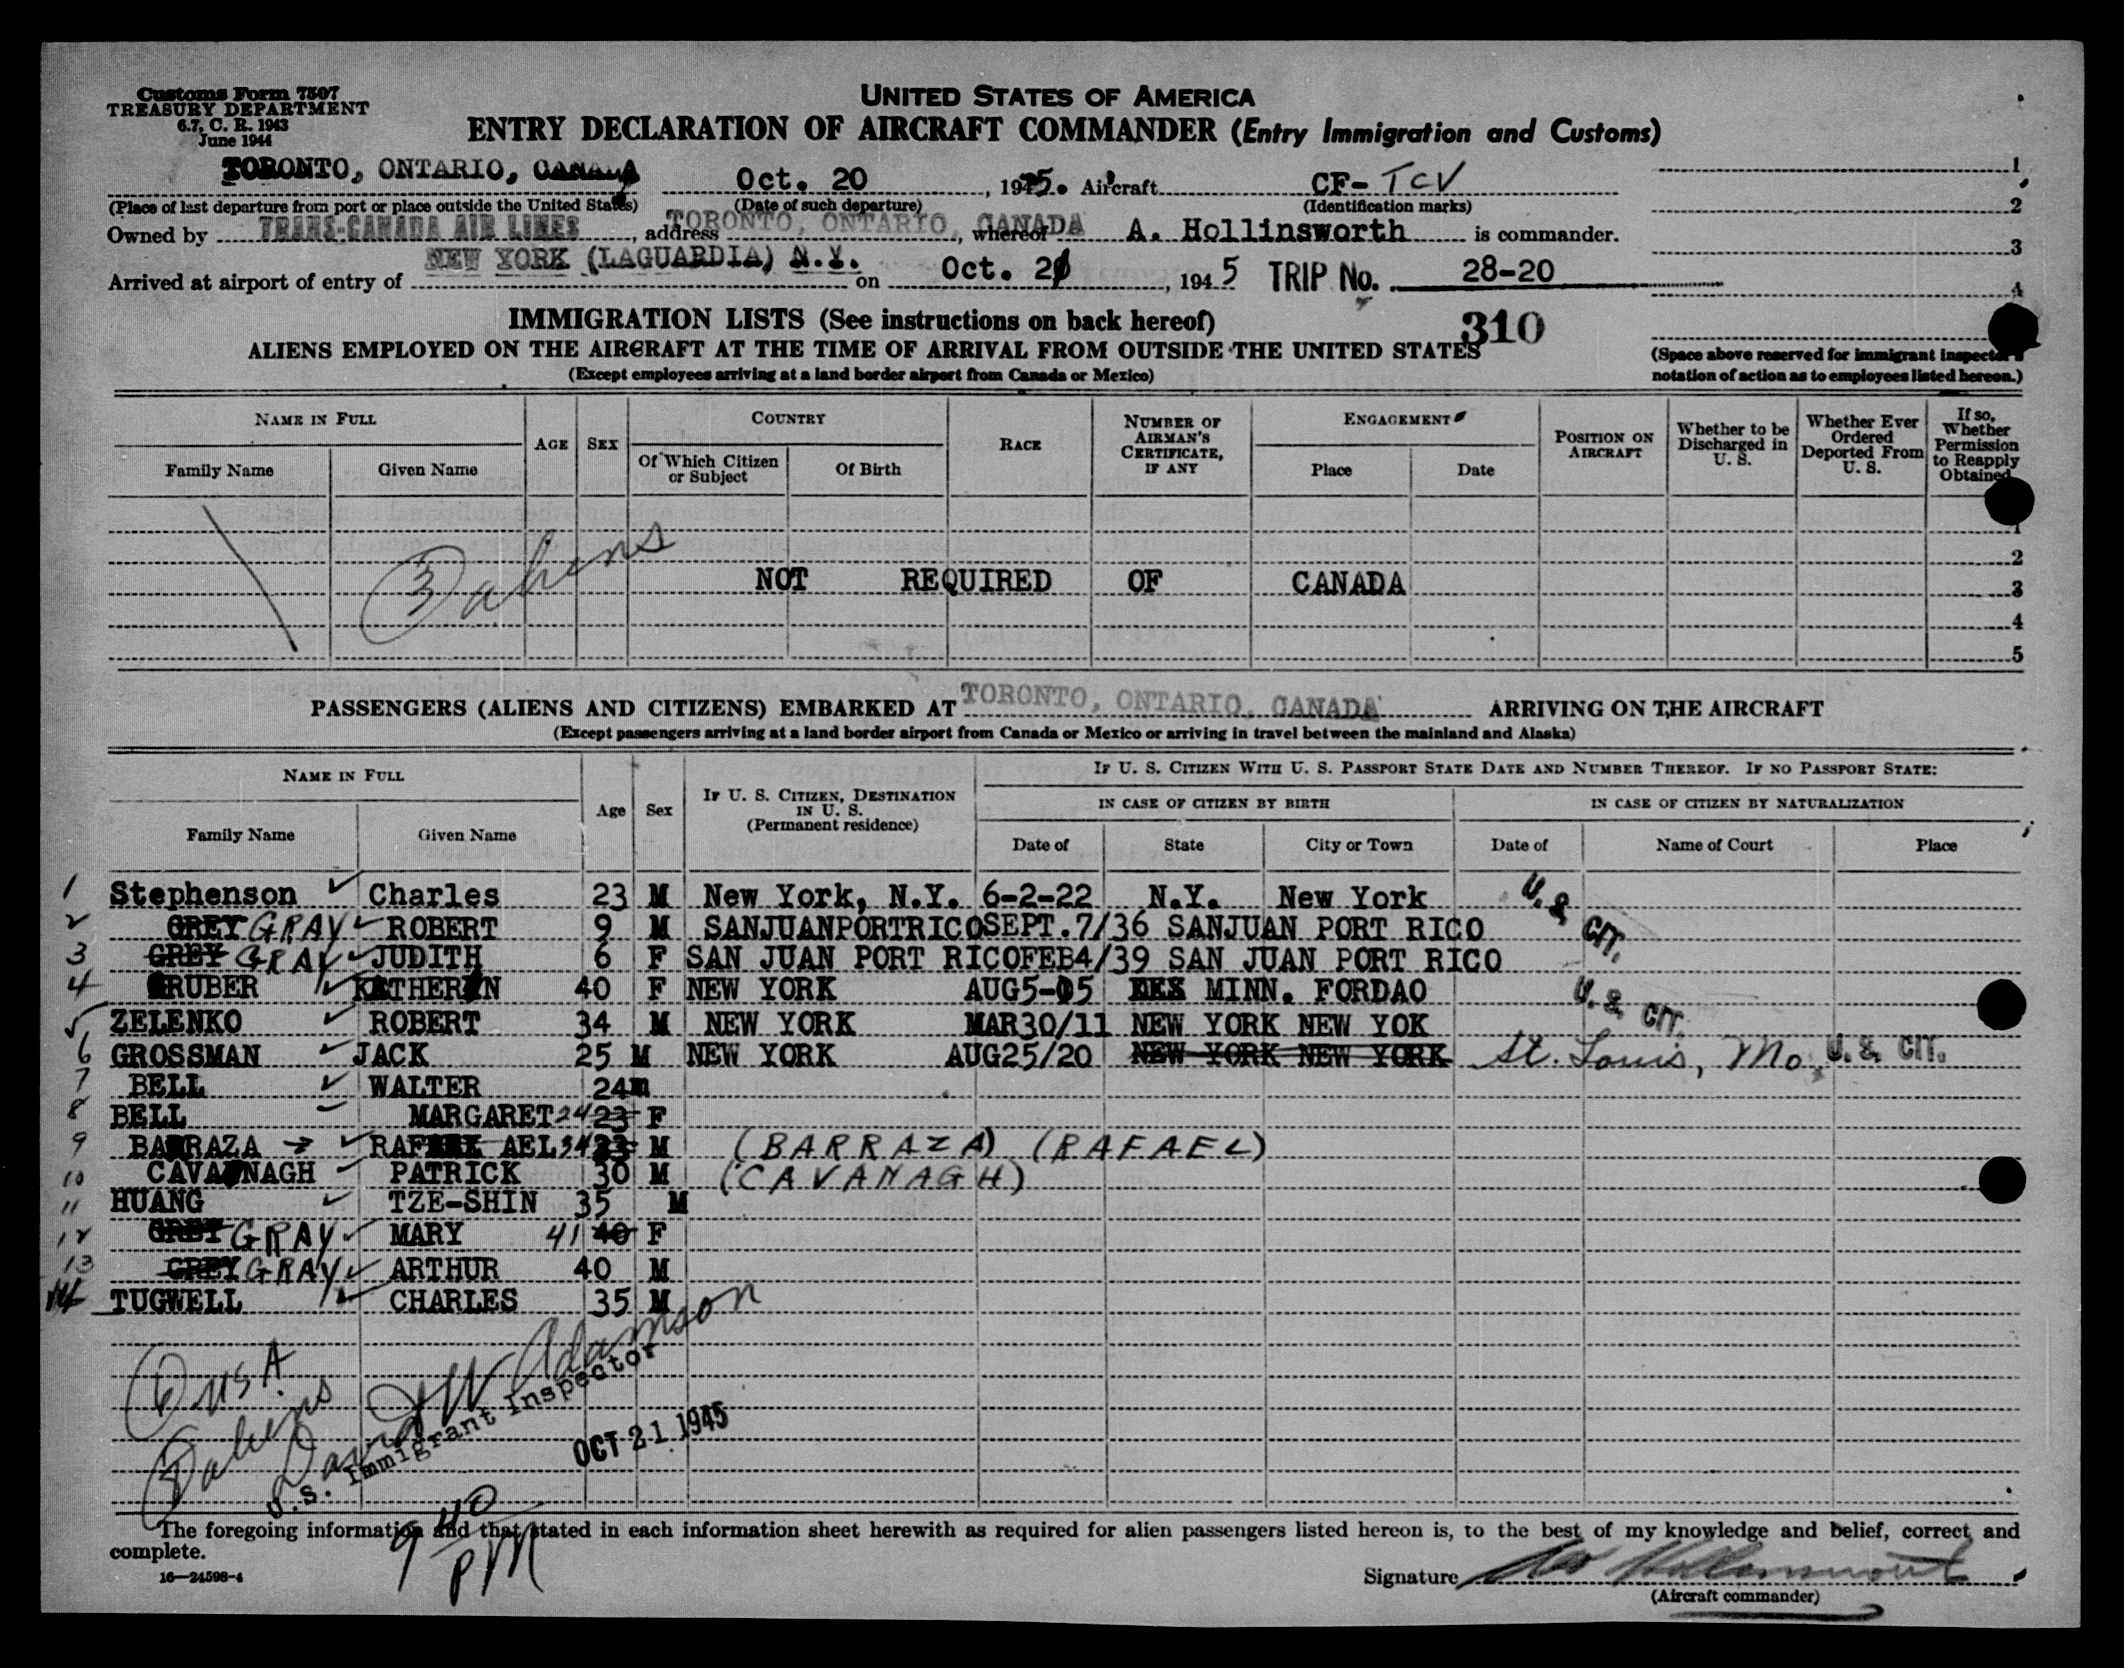 Customs Form 7507
TREASURY DEPARTMENT
6.7, C. R. 1943
June 1944
UNITED STATES OF AMERICA
ENTRY DECLARATION OF AIRCRAFT COMMANDER (Entry Immigration and Customs)
TORONTO, ONTARIO, CANADA Oct. 20, 1945. Aircraft CF-TCV 1
(Place of last departure from port or place outside the United States) (Date of such departure) (Identification marks) 2
Owned by TRANS-CANADA AIR LINES, address TORONTO, ONTARIO, CANADA, whereof A. Hollinsworth is commander. 3
Arrived at airport of entry of NEW YORK (LAGUARDIA) N.Y. on Oct. 20, 1945 TRIP No. 28-20 4
IMMIGRATION LISTS (See instructions on back hereof) 310
ALIENS EMPLOYED ON THE AIRCRAFT AT THE TIME OF ARRIVAL FROM OUTSIDE THE UNITED STATES
(Except employees arriving at a land border airport from Canada or Mexico)
(Space above reserved for immigrant inspector's
notation of action as to employees listed hereon.)
NAME IN FULL AGE SEX COUNTRY RACE NUMBER OF AIRMAN'S CERTIFICATE, IF ANY ENGAGEMENT POSITION ON AIRCRAFT Whether to be Discharged in U. S. Whether Ever Ordered Deported From U. S. If so, Whether Permission to Reapply Obtained
Family Name Given Name Of Which Citizen or Subject Of Birth Place Date
1
2
3 aliens
NOT REQUIRED OF CANADA 3
4
5
PASSENGERS (ALIENS AND CITIZENS) EMBARKED AT TORONTO, ONTARIO, CANADA ARRIVING ON THE AIRCRAFT
(Except passengers arriving at a land border airport from Canada or Mexico or arriving in travel between the mainland and Alaska)
NAME IN FULL Age Sex IF U. S. CITIZEN, DESTINATION IN U. S. (Permanent residence) IF U. S. CITIZEN WITH U. S. PASSPORT STATE DATE AND NUMBER THEREOF. IF NO PASSPORT STATE:
IN CASE OF CITIZEN BY BIRTH IN CASE OF CITIZEN BY NATURALIZATION
Family Name Given Name Date of State City or Town Date of Name of Court Place
1 Stephenson Charles 23 M New York, N.Y. 6-2-22 N.Y. New York U. S. CIT.
2 GREY GRAY ROBERT 9 M SANJUANPORTRICO SEPT.7/36 SANJUAN PORT RICO
3 GREY GRAY JUDITH 6 F SAN JUAN PORT RICO FEB4/39 SAN JUAN PORT RICO
4 GRUBER KATHERIN 40 F NEW YORK AUG5-05 MINN. FORDAO U. S. CIT.
5 ZELENKO ROBERT 34 M NEW YORK MAR30/11 NEW YORK NEW YOK
6 GROSSMAN JACK 25 M NEW YORK AUG25/20 NEW YORK NEW YORK St. Louis, Mo. U. S. CIT.
7 BELL WALTER 24 m
8 BELL MARGARET 24 23 F
9 BARRAZA RAFAEL 34 M (BARRAZA) (RAFAEL)
10 CAVANAGH PATRICK 30 M (CAVANAGH)
11 HUANG TZE-SHIN 35 M
12 GREY GRAY MARY 41 40 F
13 GREY GRAY ARTHUR 40 M
14 TUGWELL CHARLES 35 M
6 USA
aliens
David W Adamson
U.S. Immigrant Inspector
OCT 21 1945
9 40 PM
The foregoing information and that stated in each information sheet herewith as required for alien passengers listed hereon is, to the best of my knowledge and belief, correct and
complete.
16—24598-4
Signature
(Aircraft commander)